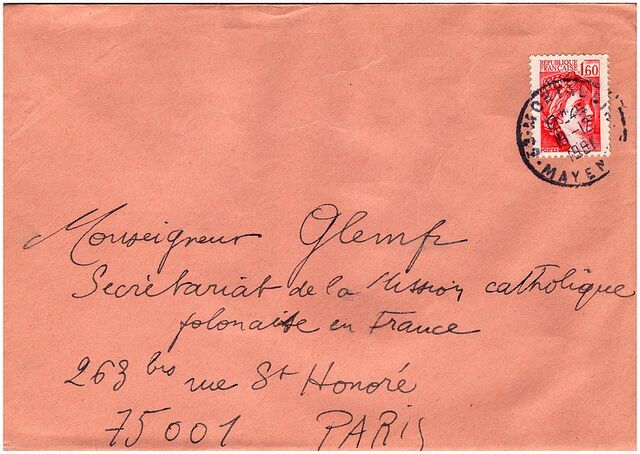 REPUBLIQUE
FRANÇAISE
1,60
53 MAYENNE
1981
Monseigneur Glemp
Secrétariat de la Mission catholique
polonaise en France
263 bis rue St Honoré
75001 PARIS